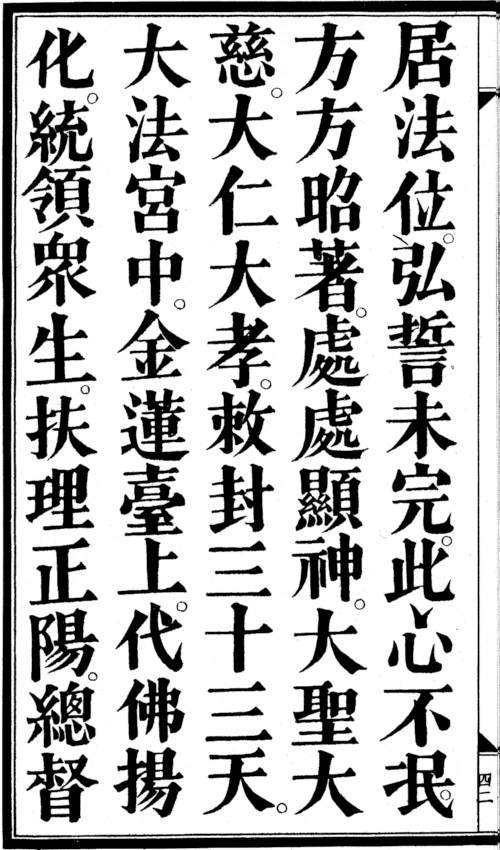 居法位。弘誓未完。此心不泯。
方方昭著。處處顯神。大聖大
慈。大仁大孝。敕封三十三天。
大法宮中。金蓮臺上。代佛揚
化。統領眾生。扶理正陽。總督
四二